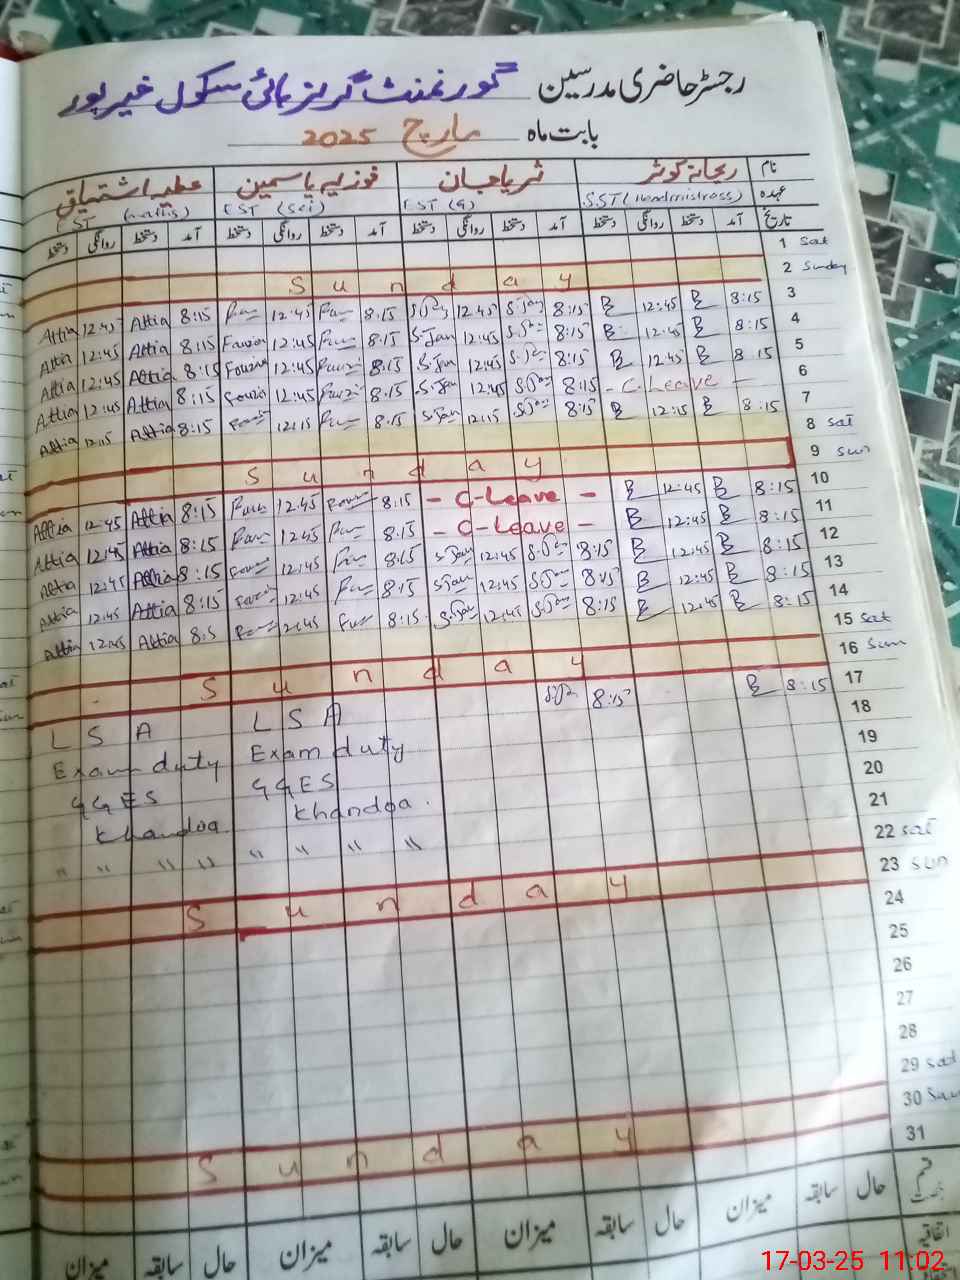 رجسٹر حاضری مدرسین گورنمنٹ گرلز ہائی سکول خیرپور
بابت ماہ مارچ 2025
نام ریحانہ کوثر ثریا جان فوزیہ یاسمین عطیہ اشتیاق
عہدہ SST (Headmistress) EST (G) EST (Sci) EST
تاریخ آمد دستخط روانگی دستخط آمد دستخط روانگی دستخط آمد دستخط روانگی دستخط آمد دستخط روانگی دستخط
1 Sat
Sunday 2 Sunday
Attia 12:45 Attia 8:15 12:45 8:15 12:45 8:15 B 12:45 B 8:15 3
Attia 12:45 Attia 8:15 Fouzia 12:45 8:15 S.Jan 12:45 8:15 B 12:45 B 8:15 4
Attia 12:45 Attia 8:15 Fouzia 12:45 8:15 S.Jan 12:45 8:15 B 12:45 B 8:15 5
Attia 12:45 Attia 8:15 12:45 8:15 S.Jan 12:45 S.Jan 8:15 - C-Leave - 6
Attia 12:15 Attia 8:15 12:15 8:15 S.Jan 12:15 S.Jan 8:15 B 12:15 B 8:15 7
8 Sat
Sunday 9 Sun
Attia 12:45 Attia 8:15 12:45 8:15 - C-Leave - B 12:45 B 8:15 10
Attia 12:45 Attia 8:15 12:45 8:15 - C-Leave - B 12:45 B 8:15 11
Attia 12:45 Attia 8:15 12:45 8:15 S.Jan 12:45 S.Jan 8:15 B 12:45 B 8:15 12
Attia 12:45 Attia 8:15 12:45 8:15 S.Jan 12:45 S.Jan 8:15 B 12:45 B 8:15 13
Attia 12:45 Attia 8:5 12:45 8:15 S.Jan 12:45 S.Jan 8:15 B 12:45 B 8:15 14
15 Sat
Sunday 16 Sun
8:15 B 8:15 17
L S A L S A 18
Exam duty Exam duty 19
GGES GGES 20
Khandoa Khandoa. 21
" " " " " " " " 22 Sat
23 Sun
Sunday 24
25
26
27
28
29 Sat
30 Sun
Sunday 31
حال سابقہ میزان حال سابقہ میزان حال سابقہ میزان حال سابقہ میزان
اتفاقیہ
17-03-25 11:02